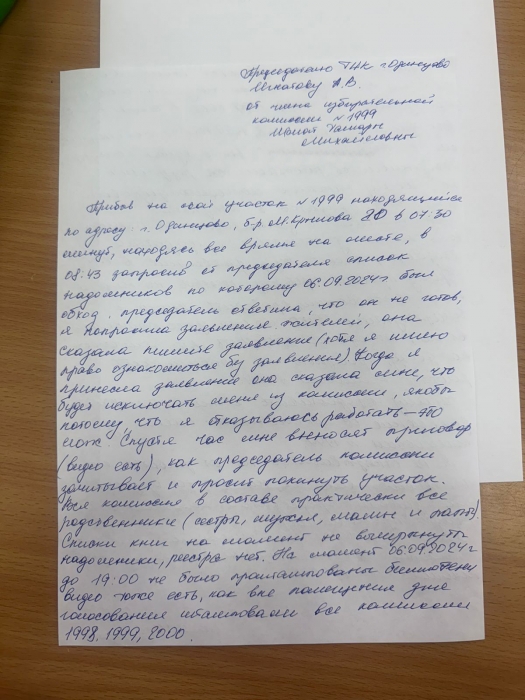 Председателю ТИК г. Одинцово
Игнатову А.В.
от члена избирательной
комиссии №1999
Тамары
Михайловны
Прибыв на свой участок №1999 находящийся
по адресу г. Одинцово, б-р М. Крылова 20 в 07:30
минут, находясь все время на месте, в
08:43 запросив от председателя список
надомников по которому 06.09.2024г был
обход. председатель ответила, что он не готов,
я попросила заявление жителей, она
сказала пишите заявление (хотя я имею
право ознакомиться без заявления) Когда я
принесла заявление она сказала мне, что
будет исключать меня из комиссии, якобы
потому, что я отказываюсь работать – это
ложь. Спустя час мне выносят приговор
(видео есть), как председатель комиссии
зачитывает и просит покинуть участок.
Вся комиссия в составе практически все
родственники (сестры, мужья, мамы и папы)
Списки книг на момент не вычеркнуты
надомники, реестра нет. На момент 06.09.2024г
до 19:00 не было проштампованы бюллетени
видео тоже есть, как вне помещения для
голосования штамповали все комиссии
1998, 1999, 2000.